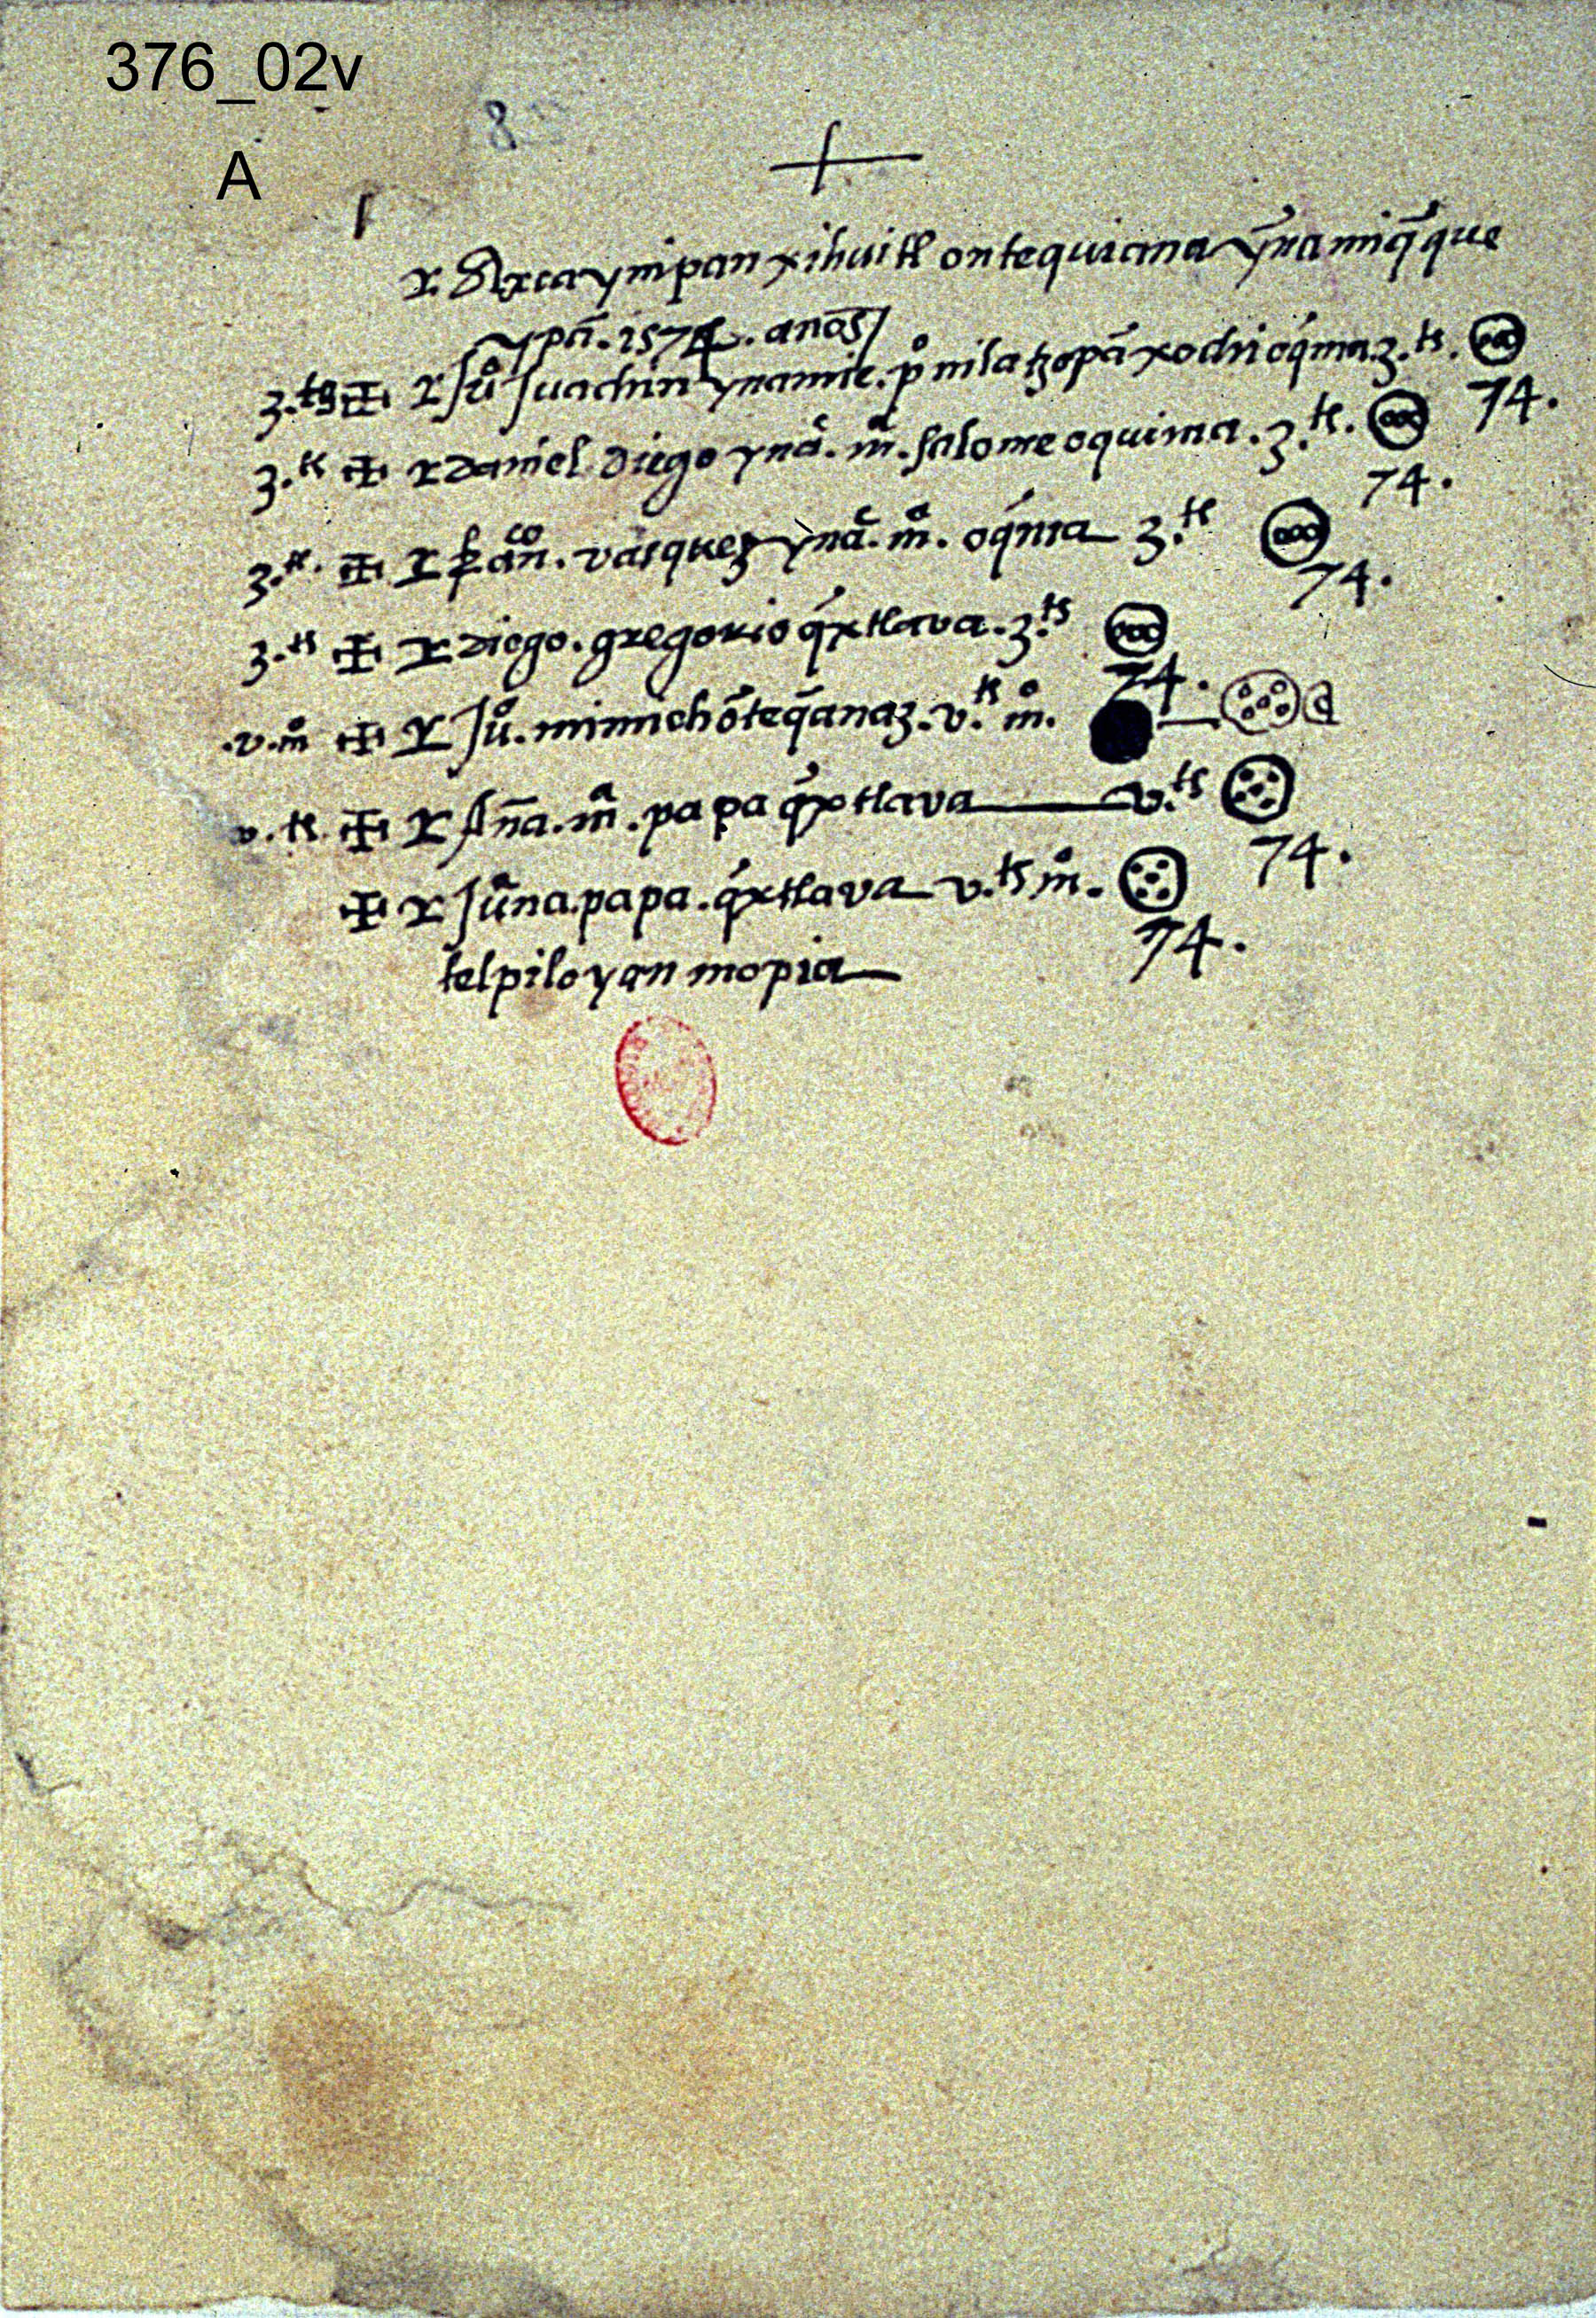 376_02v
8
A
r. Axca ynipan xihuitl ontequicana ỹnamiq̃que
ypā. 1574. anos/
3.ts r Juº Juachin ynamic. pº nilatzopā xochi oq́ma 3.ts. 74.
3.ts r daniel diego ynāc. mª. salome oquima. 3.ts. 74.
3.ts. r frānco. vasquez ynāc. mª. oq́ma 3.ts 74.
3.ts r diego. gregorio q́xtlava. 3.ts 74.
.v. mº r Juº. mimich ōteq̄anaz. v.ts mº.
v. ts. r Ana. mª. papa q́xtlava v.ts 74.
r Juªna. papa. q́xtlava v.ts mº. 74.
telpiloyan mopia